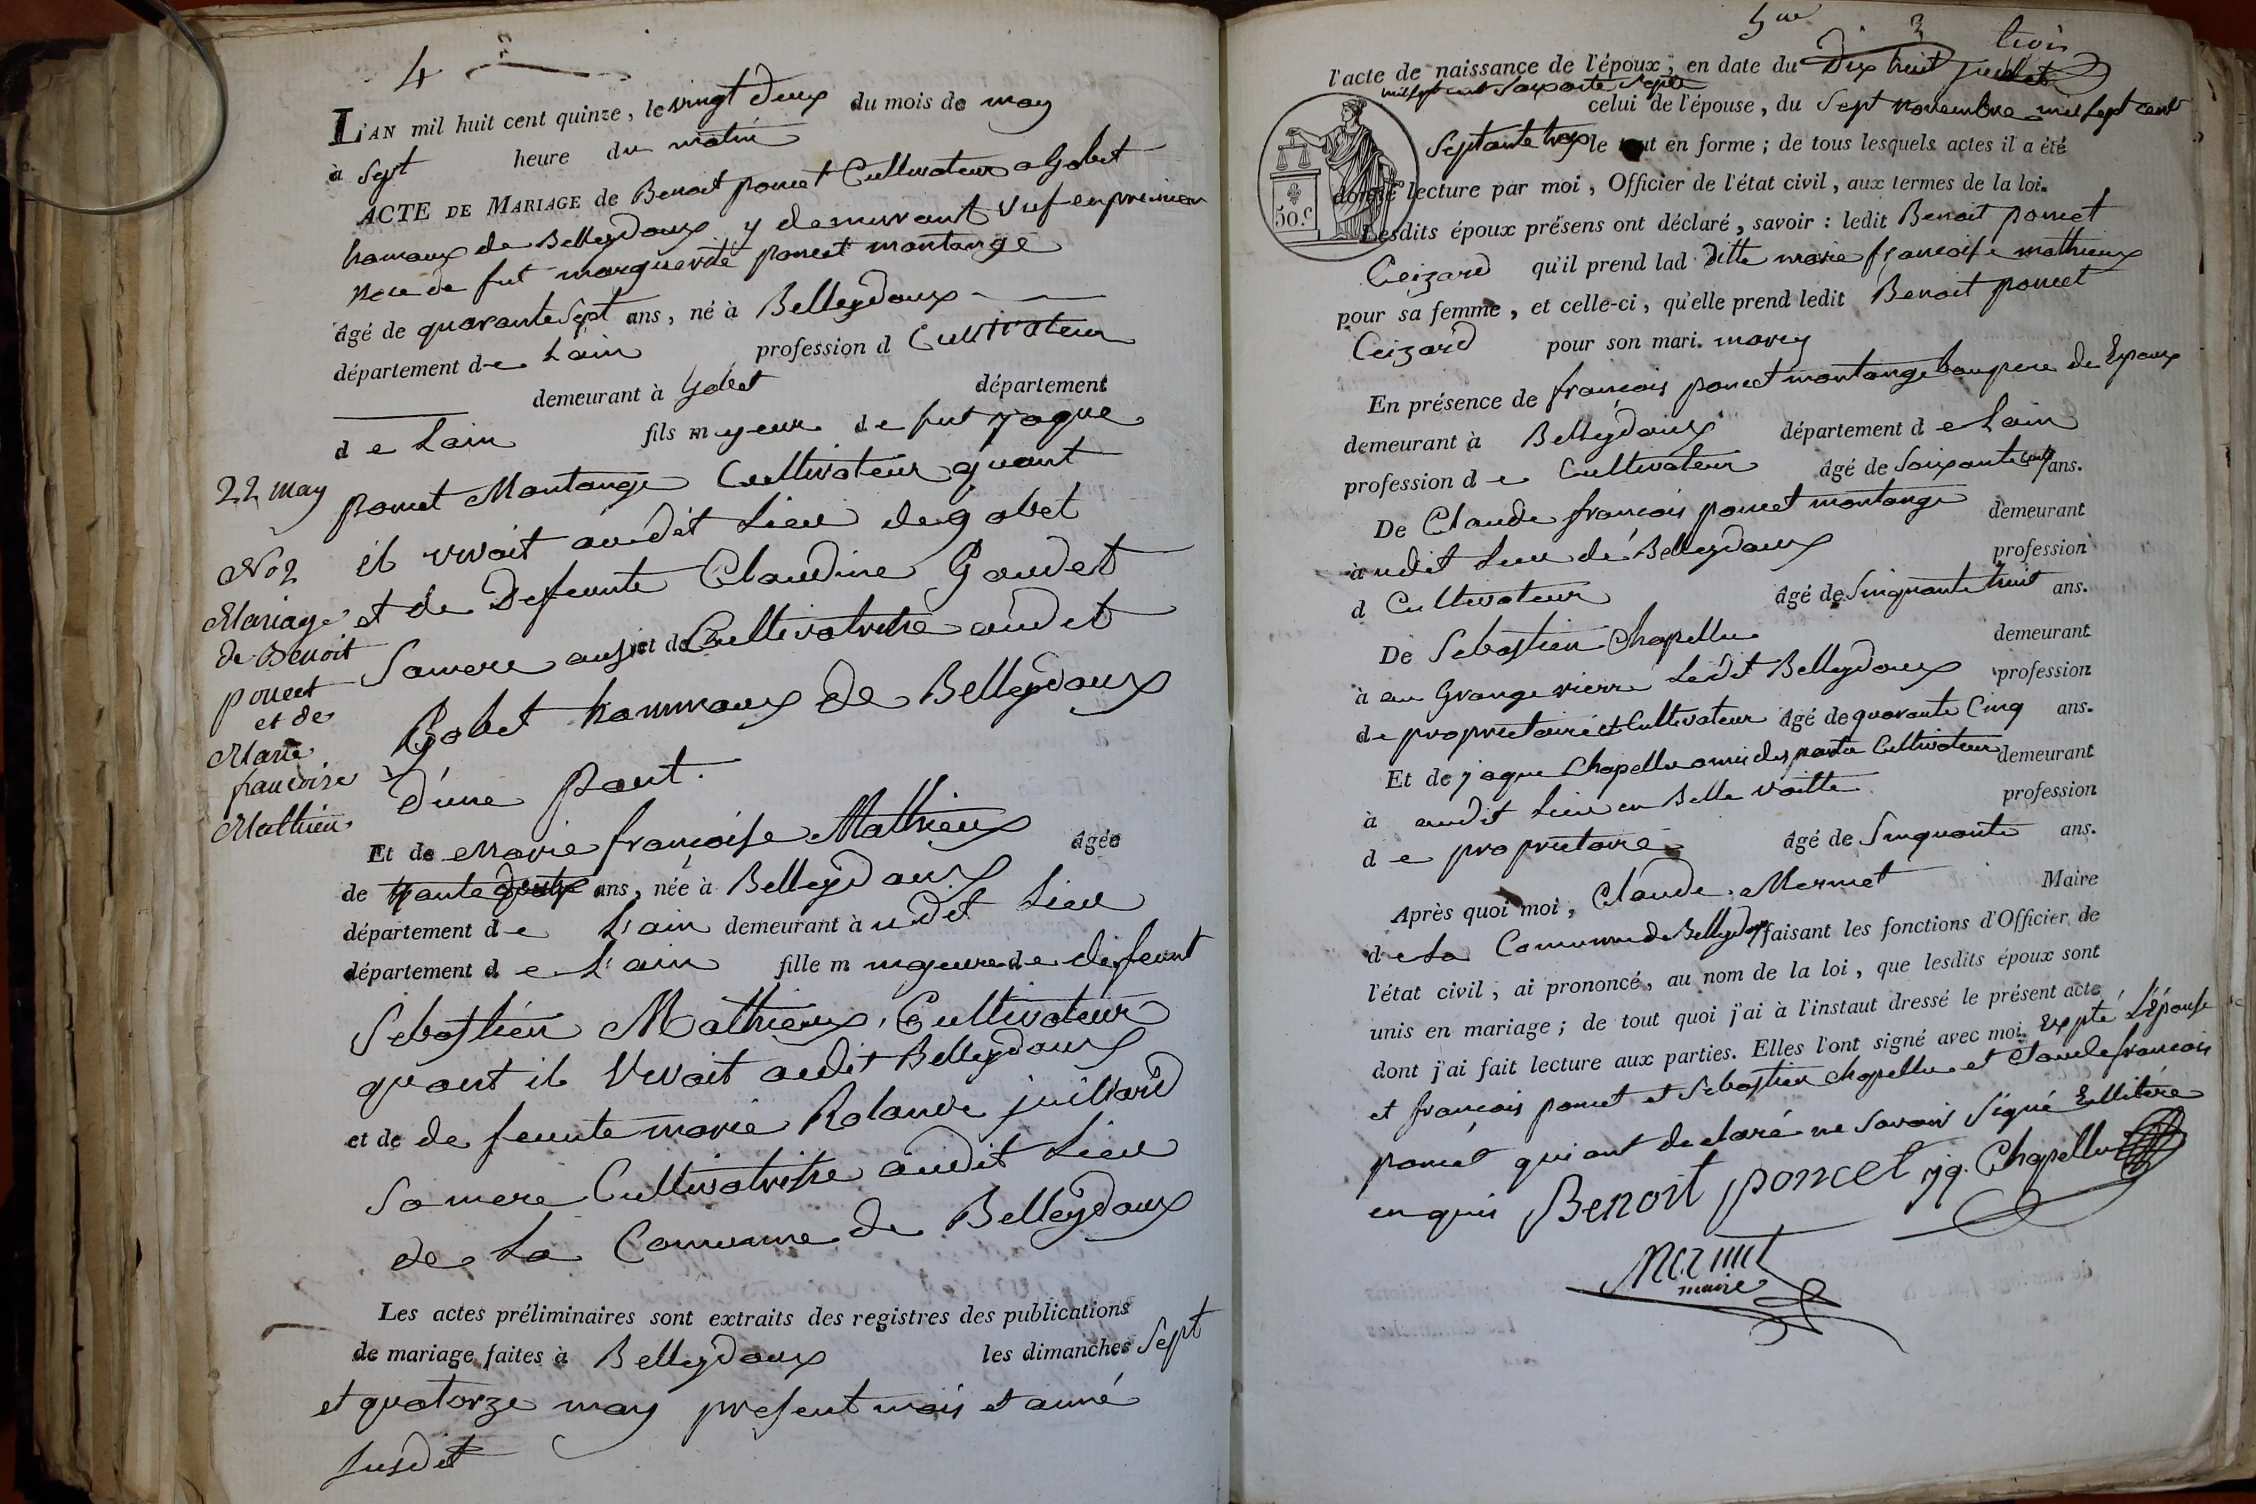 4
L'AN mil huit cent quinze, le vingt deux du mois de may
à Sept heure du matin
ACTE DE MARIAGE de Benoit poncet Cultivateur a Gobet
hamaux de Belleydoux y demeurant vuf en premier
noce de fut marguerite poncet montange
âgé de quarante sept ans, né à Belleydoux
département de Lain profession d Cultivateur
demeurant à Gobet département
de Lain fils mageur de fut jaque
poncet Montange Cultivateur quant
il vivoit audit Lieu de gobet
et de Defeunte Claudine Gaudet
Samere ausi et de Cultivatrise audit
Gobet hammaux de Belleydoux
d'une part.
22 may
No 2
Mariage
de Benoit
poncet
et de
Marie
francoise
Mathieu
Et de Marie françoise Mathieux âgée
de trante ans, née à Belleydoux
département de L'ain demeurant à udit Lieu
département de L'ain fille m mageure de defeunt
Sebastien Mathieux, Cultivateur
quant il Vivoit audit Belleydoux
et de de feunte marie Rolande juillard
Sa mere Cultivatrise audit Lieu
de La Comunne de Belleydoux
Les actes préliminaires sont extraits des registres des publications
de mariage faites à Belleydoux les dimanches Sept
et quatorze may present mois et anné
susdit
3 trois
l'acte de naissance de l'époux, en date du Dix huit juillet
mil sept cent Soixante Sept
celui de l'épouse, du Sept novembre mil Sept cent
Septante trois le tout en forme; de tous lesquels actes il a été
donné lecture par moi, Officier de l'état civil, aux termes de la loi.
50.c
Lesdits époux présens ont déclaré, savoir: ledit Benoit poncet
Ceizard qu'il prend lad ditte marie françoise mathieux
pour sa femme, et celle-ci, qu'elle prend ledit Benoit poncet
Ceizard pour son mari. marey
En présence de françois poncet montange baupere de Epoux
demeurant à Belleydoux département de Lain
profession de Cultivateur âgé de Soixante ans.
De Claude françois poncet montange demeurant
à udit Lieu de Belleydoux profession
d Cultivateur âgé de Sinquante huit ans.
De Sebastien Chapellu demeurant
à au Grange Ledit Belleydoux profession
de proprietaire et Cultivateur âgé de quarante Cinq ans.
Et de jaque Chapellu amis des partie Cultivateur demeurant
à audit Lieu en Belle voitte profession
de proprietaire âgé de Sinquante ans.
Après quoi moi, Claude Mermet Maire
de La Comunne de Belleydoux faisant les fonctions d'Officier de
l'état civil, ai prononcé, au nom de la loi, que lesdits époux sont
unis en mariage; de tout quoi j'ai à l'instaut dressé le présent acte
dont j'ai fait lecture aux parties. Elles l'ont signé avec moi. Expté L'épouse
et françois poncet et Sebastien chapellu et Claude françois
poncet qui ont declaré ne Savoir Signé Enlitére
enquis Benoit poncet jq. Chapellu
Mermet
maire